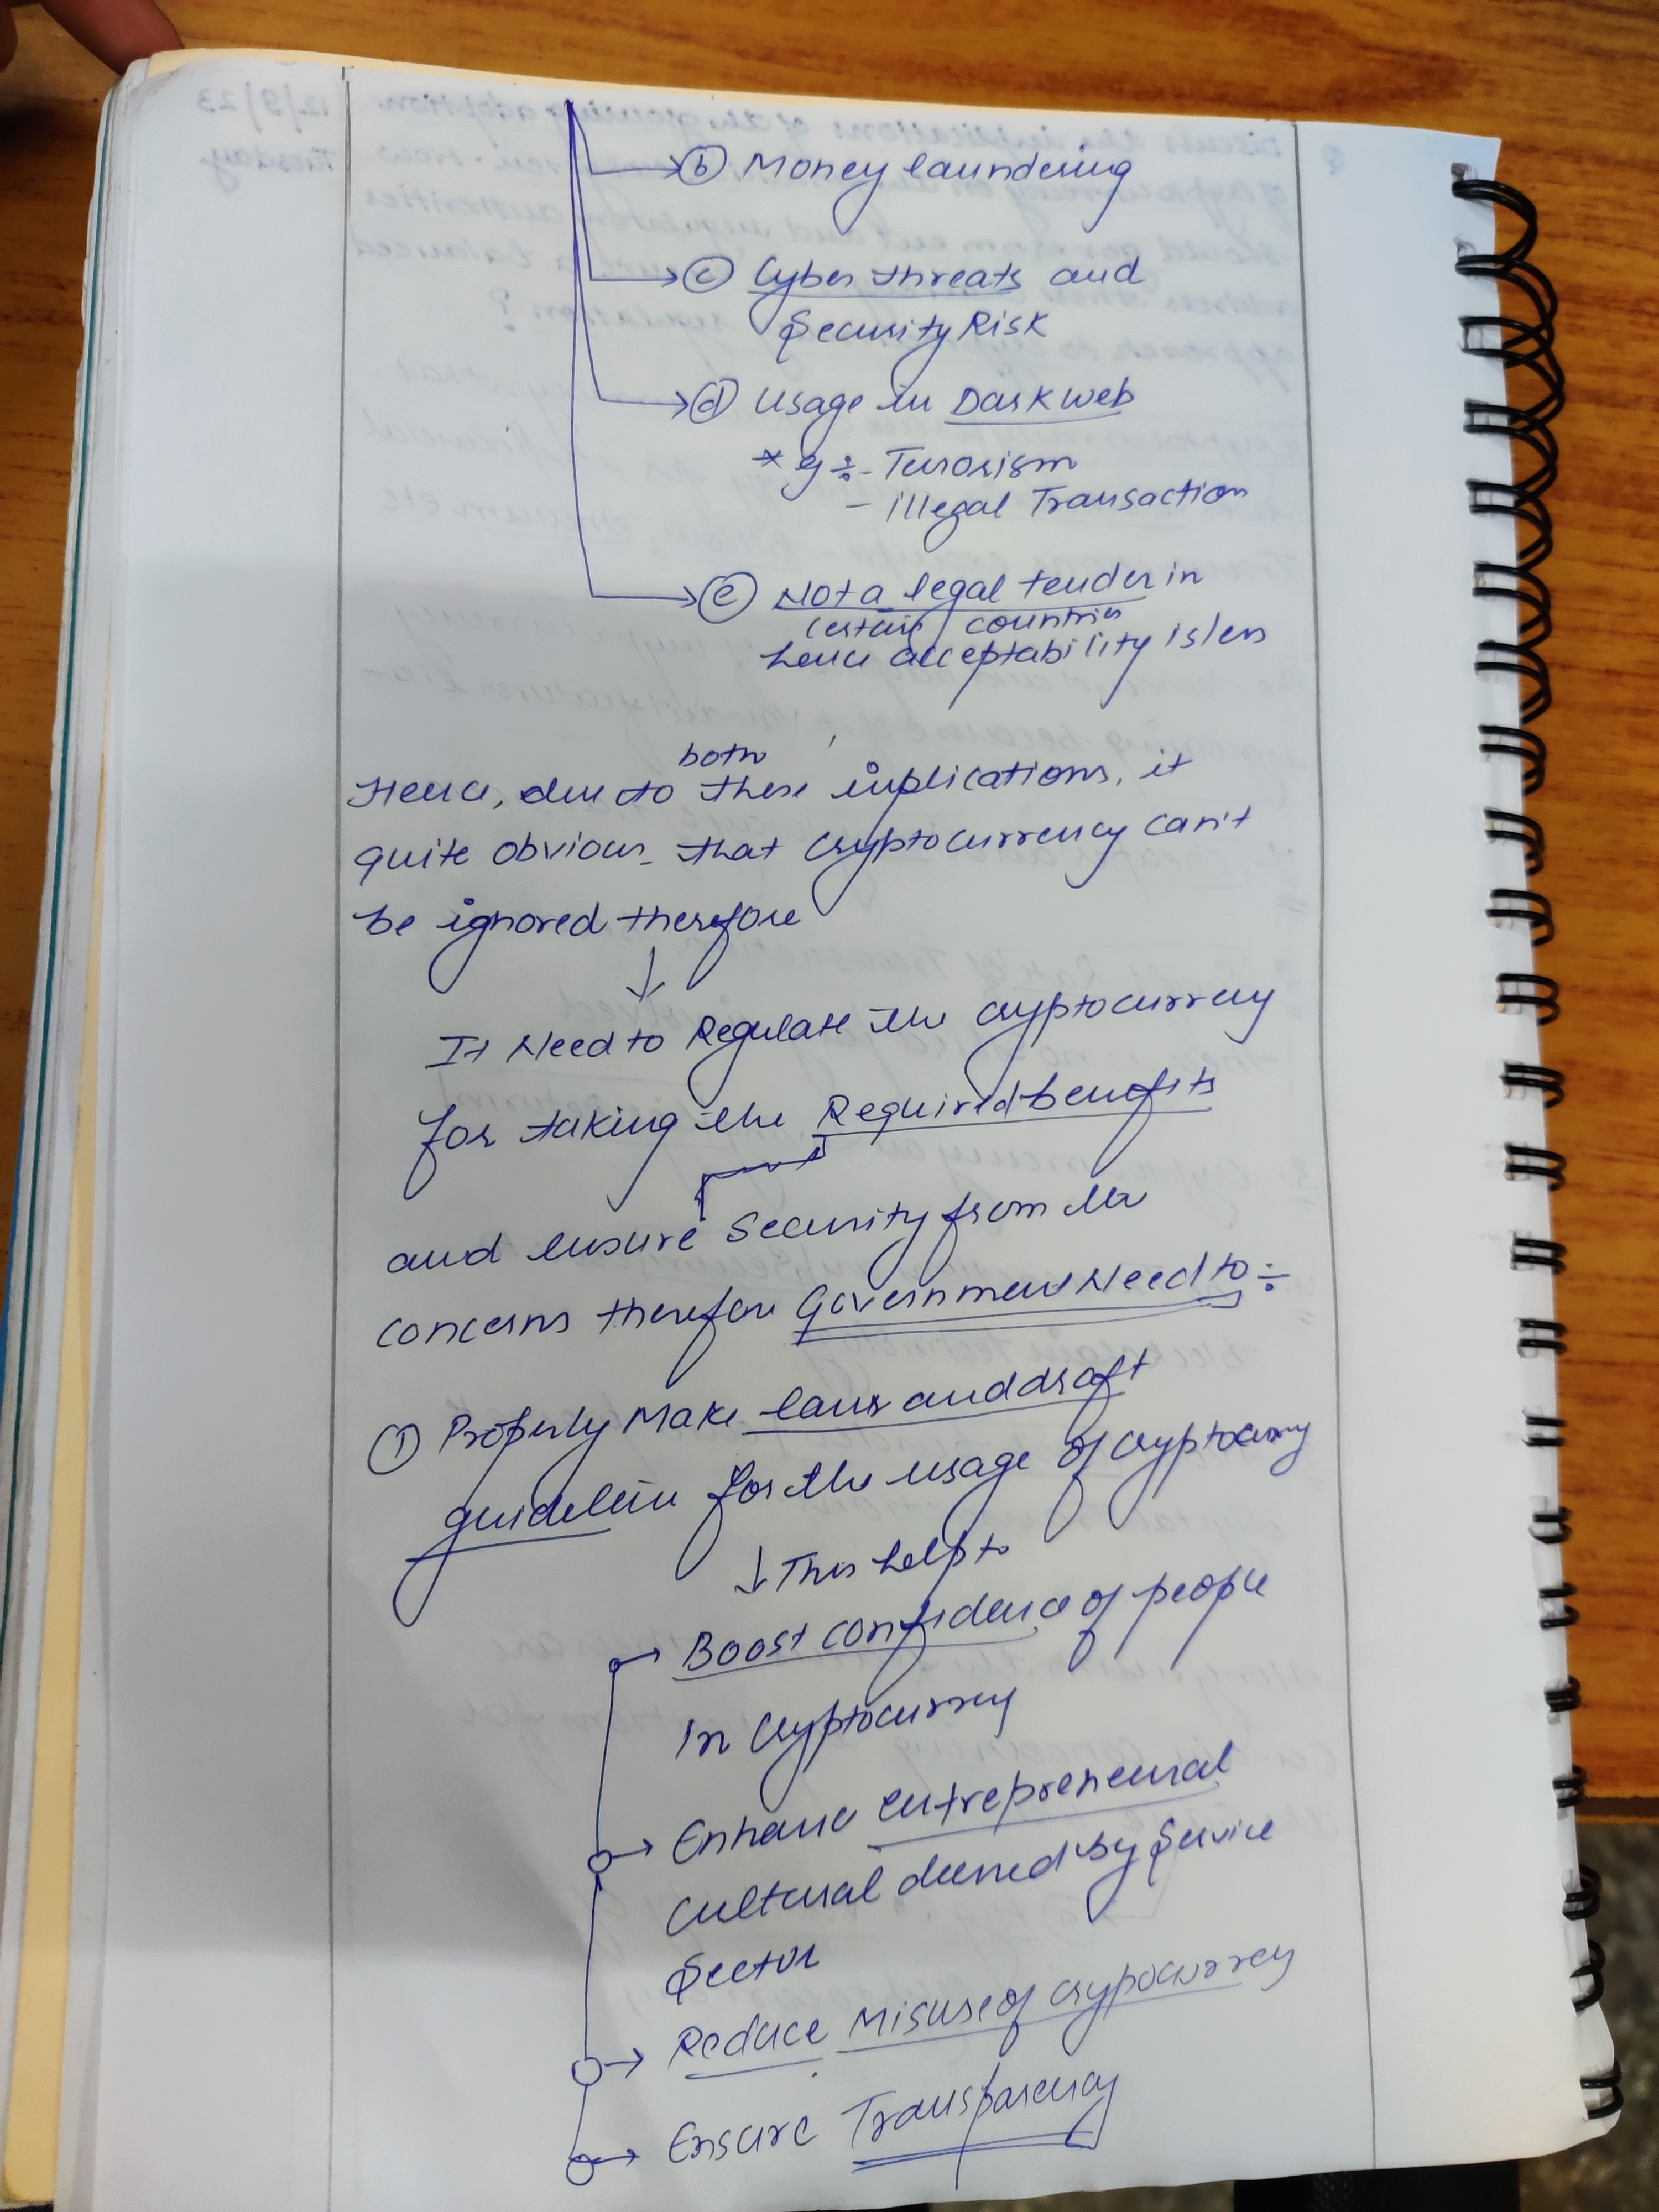 (b) Money laundering
(c) Cyber threats and
Security Risk
(d) Usage in Dark web
* eg ÷ - Terrorism
- illegal Transaction
(e) Not a legal tender in
certain countries
hence acceptability is less
both
Hence, due to these implications, it
quite obvious that cryptocurrency can't
be ignored therefore
↓
It Need to Regulate the cryptocurrency
for taking the Required benefits
and ensure Security from the
concerns therefore Government Need to ÷
(1) Properly Make laws and draft
guideline for the usage of cryptocurrency
↓ This help to
→ Boost confidence of people
In Cryptocurrency
→ Enhance entrepreneurial
Cultural by Service
Sector
→ Reduce Misuse of crypocurrecy
→ Ensure Transparency